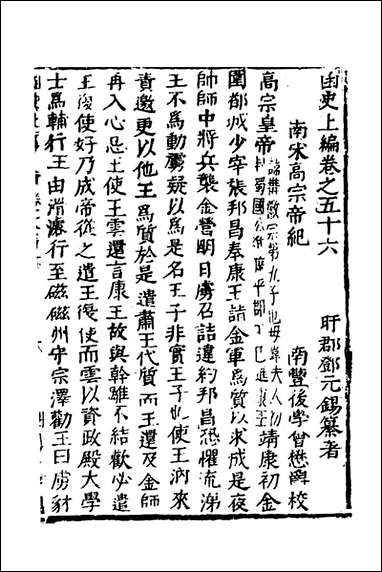 函史上編卷之五十六
盱郡鄧元錫纂著
南宋高宗帝紀
南豐後學曾懋爵校
高宗皇帝諱構徽宗第九子也母韋夫人初封蜀國公進廣平郡王已進康王靖康初金
圍都城少宰張邦昌奉康王詣金軍爲質以求成是夜
帥師中將兵襲金營明日虜召詰違約邦昌恐懼流涕
王不爲動虜疑以爲是名王子非實王子也使王汭來
責邀更以他王爲質於是遣肅王代質而王還及金師
再入心忌王使王雲還言康王故與斡離不結歡必遣
王復使好乃成帝從之遣王復使而雲以資政殿大學
士爲輔行王由滑濬行至磁磁州守宗澤勸王曰虜豺